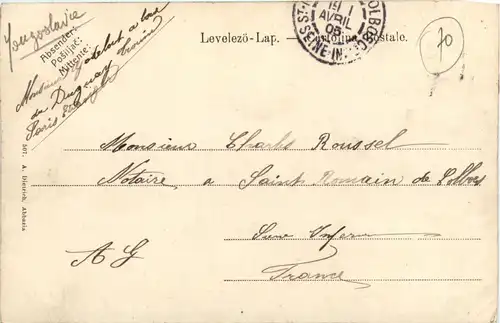 Yougoslavie
Absender:
Pošiljač:
Mittente:
Monsieur
du Duguay Trouin
Paris
Levelező-Lap. — Cartolina postale.
19
AVRIL
05
SEINE IN
70
Monsieur Charles Roussel
Notaire, a Saint Romain de Colbosc
Seine Infere
France
A G
507. A. Dietrich, Abbazia